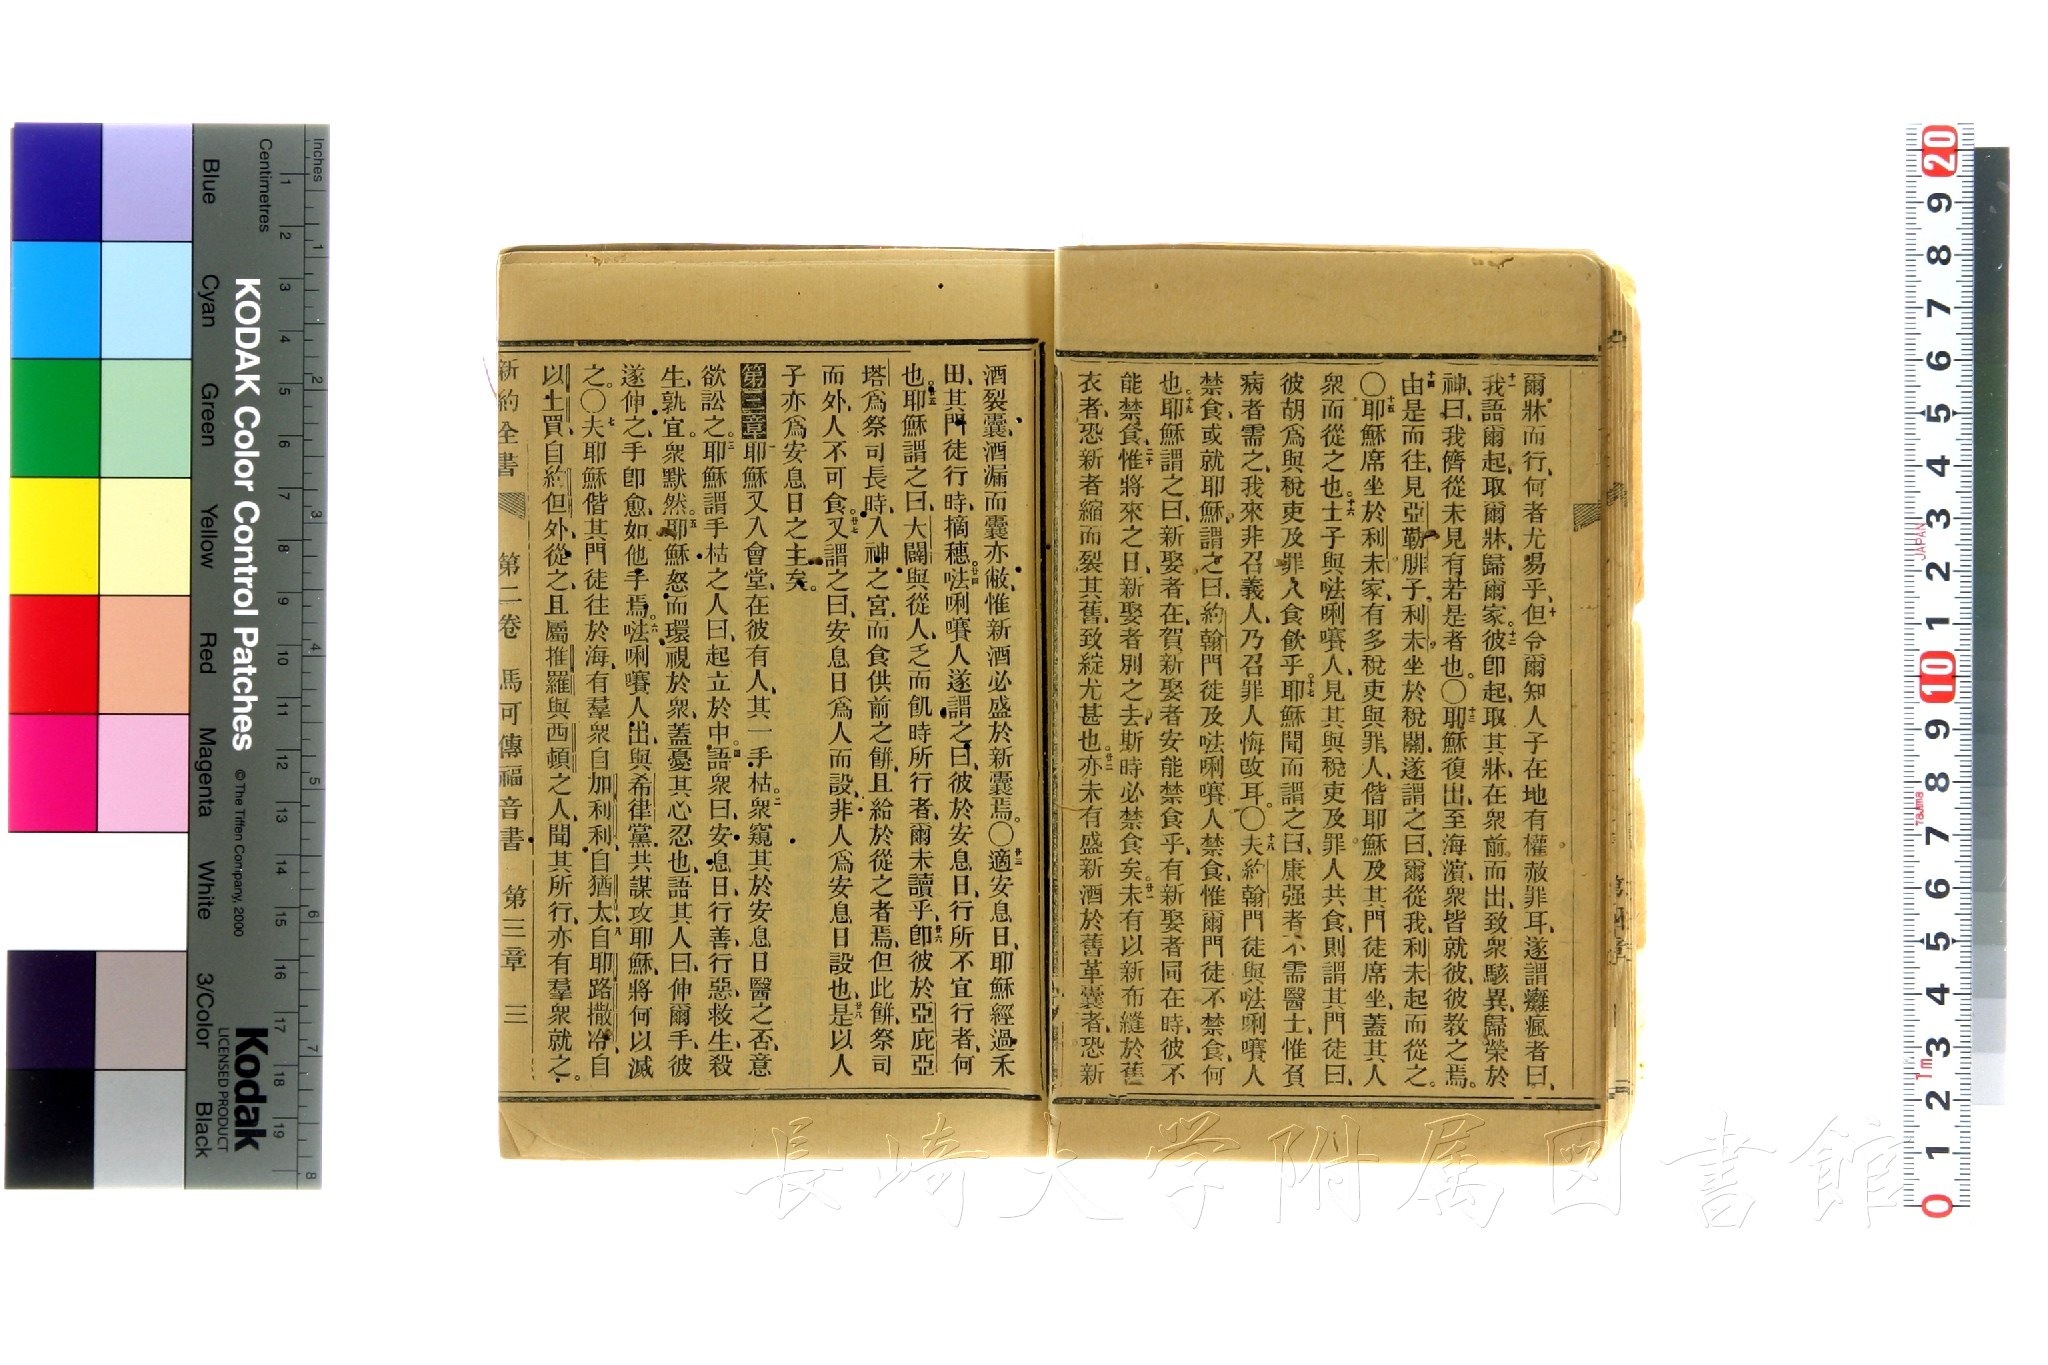 爾牀而行、何者尤易乎、十但令爾知人子在地有權赦罪耳、遂謂癱瘋者曰、
十一我語爾起、取爾牀、歸爾家。十二彼卽起、取其牀、在衆前而出、致衆駭異、歸榮於
神、曰、我儕從未見有若是者也。〇十三耶穌復出、至海濱、衆皆就彼、彼教之焉。
十四由是而往、見亞勒腓子利未坐於稅關、遂謂之曰、爾從我、利未起而從之。
〇十五耶穌席坐於利未家、有多稅吏與罪人、偕耶穌及其門徒席坐、蓋其人
衆而從之也。十六士子與𠵽唎㘔人、見其與稅吏及罪人共食、則謂其門徒曰、
彼胡爲與稅吏及罪人食飲乎。十七耶穌聞而謂之曰、康强者不需醫士、惟負
病者需之、我來非召義人、乃召罪人悔改耳。〇十八夫約翰門徒與𠵽唎㘔人
禁食、或就耶穌、謂之曰、約翰門徒及𠵽唎㘔人禁食、惟爾門徒不禁食、何
也。十九耶穌謂之曰、新娶者在、賀新娶者安能禁食乎、有新娶者同在時、彼不
能禁食、二十惟將來之日、新娶者別之去、斯時必禁食矣。廿一未有以新布縫於舊
衣者、恐新者縮而裂其舊、致綻尤甚也。廿二亦未有盛新酒於舊革囊者、恐新
酒裂囊、酒漏而囊亦敝、惟新酒必盛於新囊焉。〇廿三適安息日、耶穌經過禾
田、其門徒行時、摘穗。廿四𠵽唎㘔人遂謂之曰、彼於安息日、行所不宜行者、何
也。廿五耶穌謂之曰、大闢與從人、乏而飢時所行者、爾未讀乎、廿六卽彼於亞庇亞
塔爲祭司長時、入神之宮、而食供前之餅、且給於從之者焉、但此餅祭司
而外、人不可食。廿七又謂之曰、安息日爲人而設、非人爲安息日設也、廿八是以人
子亦爲安息日之主矣。
第三章 一耶穌又入會堂、在彼有人、其一手枯。二衆窺其於安息日醫之否、意
欲訟之。三耶穌謂手枯之人曰、起立於中。四語衆曰、安息日行善、行惡、救生、殺
生、孰宜。衆默然。五耶穌怒而環視於衆、蓋憂其心忍也、語其人曰、伸爾手、彼
遂伸之、手卽愈、如他手焉。六𠵽唎㘔人出、與希律黨共謀攻耶穌、將何以滅
之。〇七夫耶穌偕其門徒往於海、有羣衆自加利利、自猶太、八自耶路撒冷、自
以土買、自約但外、從之、且屬推羅與西頓之人、聞其所行、亦有羣衆就之。
新約全書 第二卷 馬可傳福音書 第三章 三
KODAK Color Control Patches
© The Tiffen Company, 2000
Kodak
LICENSED PRODUCT
Inches
Centimetres
Blue Cyan Green Yellow Red Magenta White 3/Color Black
長崎大学附属図書館
JAPAN